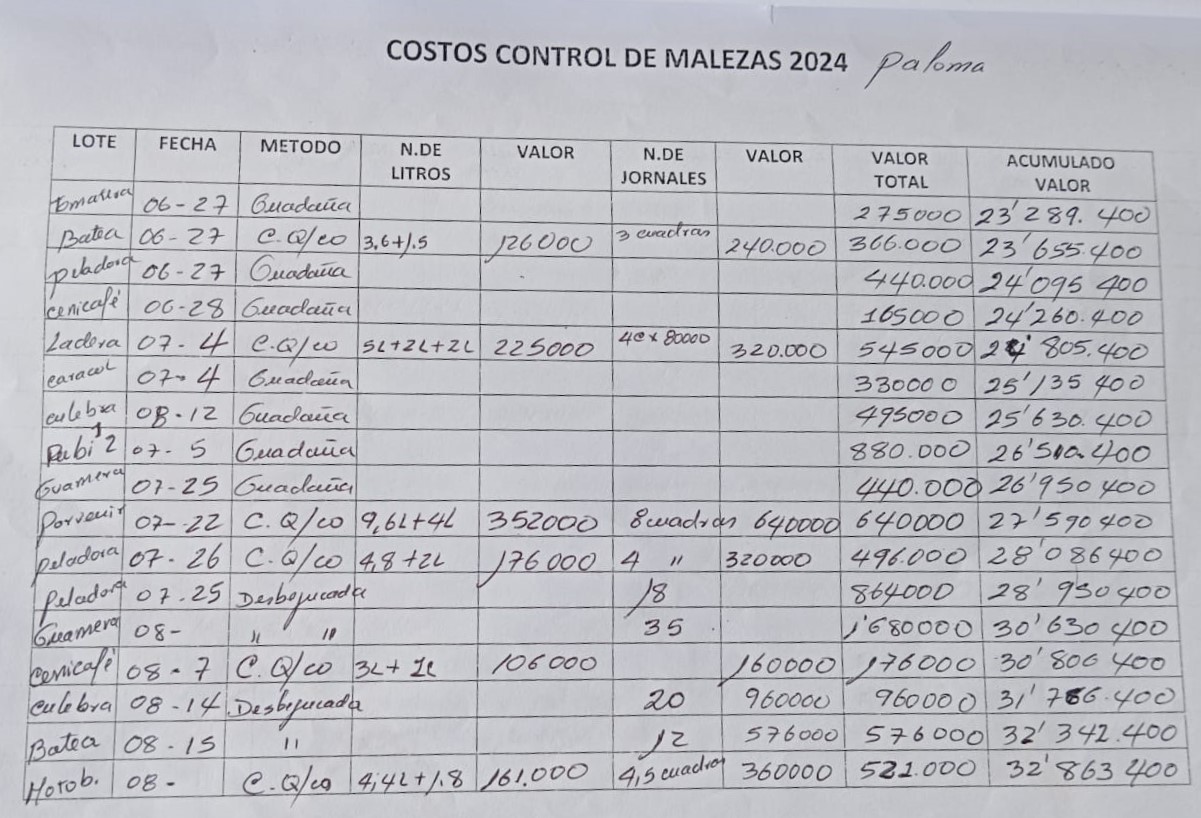 COSTOS CONTROL DE MALEZAS 2024 Paloma
LOTE FECHA METODO N.DE LITROS VALOR N.DE JORNALES VALOR VALOR TOTAL ACUMULADO VALOR
06-27 Guadaña 275000 23'289.400
Batea 06-27 C.Q/co 3,6+1.5 126000 3 cuadras 240.000 366.000 23'655.400
peladora 06-27 Guadaña 440.000 24'095 400
cenicafé 06-28 Guadaña 165000 24'260.400
Ladera 07-4 C.Q/co 5L+2L+2L 225000 4c x 80000 320.000 545000 24'805.400
caracol 07-4 Guadaña 330000 25'135 400
culebra 08-12 Guadaña 495000 25'630.400
Rubi 1 2 07-5 Guadaña 880.000 26'510.400
Guamera 07-25 Guadaña 440.000 26'950 400
Porvenir 07-22 C.Q/co 9,6L+4L 352000 8cuadras 640000 640000 27'590 400
peladora 07-26 C.Q/co 4,8+2L 176000 4 " 320000 496.000 28'086400
Peladora 07.25 Desbejucada 18 864000 28'950 400
Guamera 08- " " 35 1'680000 30'630 400
Cenicafé 08-7 C.Q/co 3L+1L 106000 160000 176000 30'806 400
culebra 08-14 Desbejucada 20 960000 960000 31'766.400
Batea 08-15 " 12 576000 576000 32'342.400
Horob. 08- C.Q/co 4,4L+1.8 161.000 4,5 cuadras 360000 521.000 32'863 400